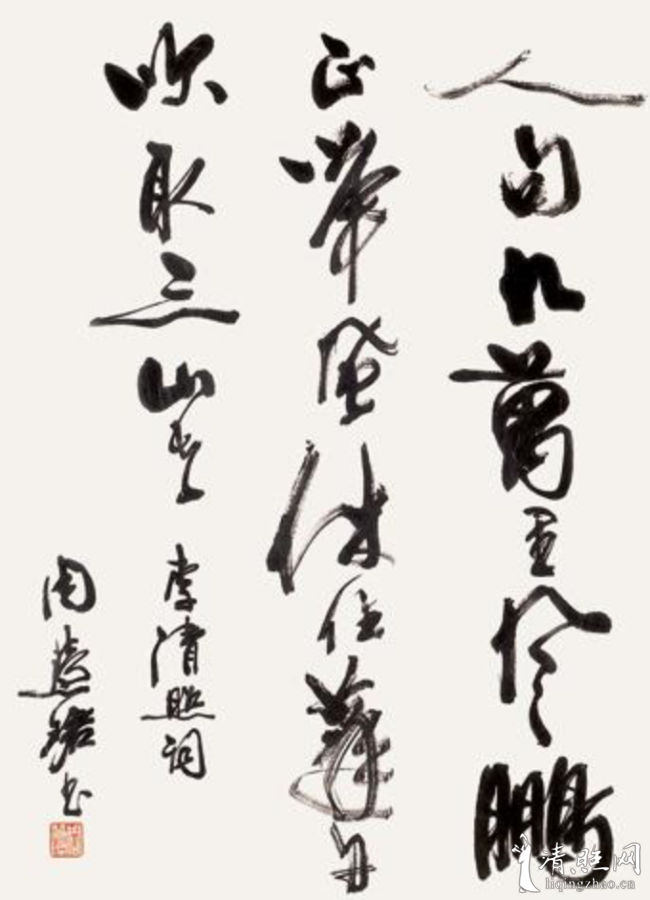 人句九萬里風鵬
正举風休住蓬舟
吹取三山去 李清照词
周慧珺书
清照网
liqingzhao.cn